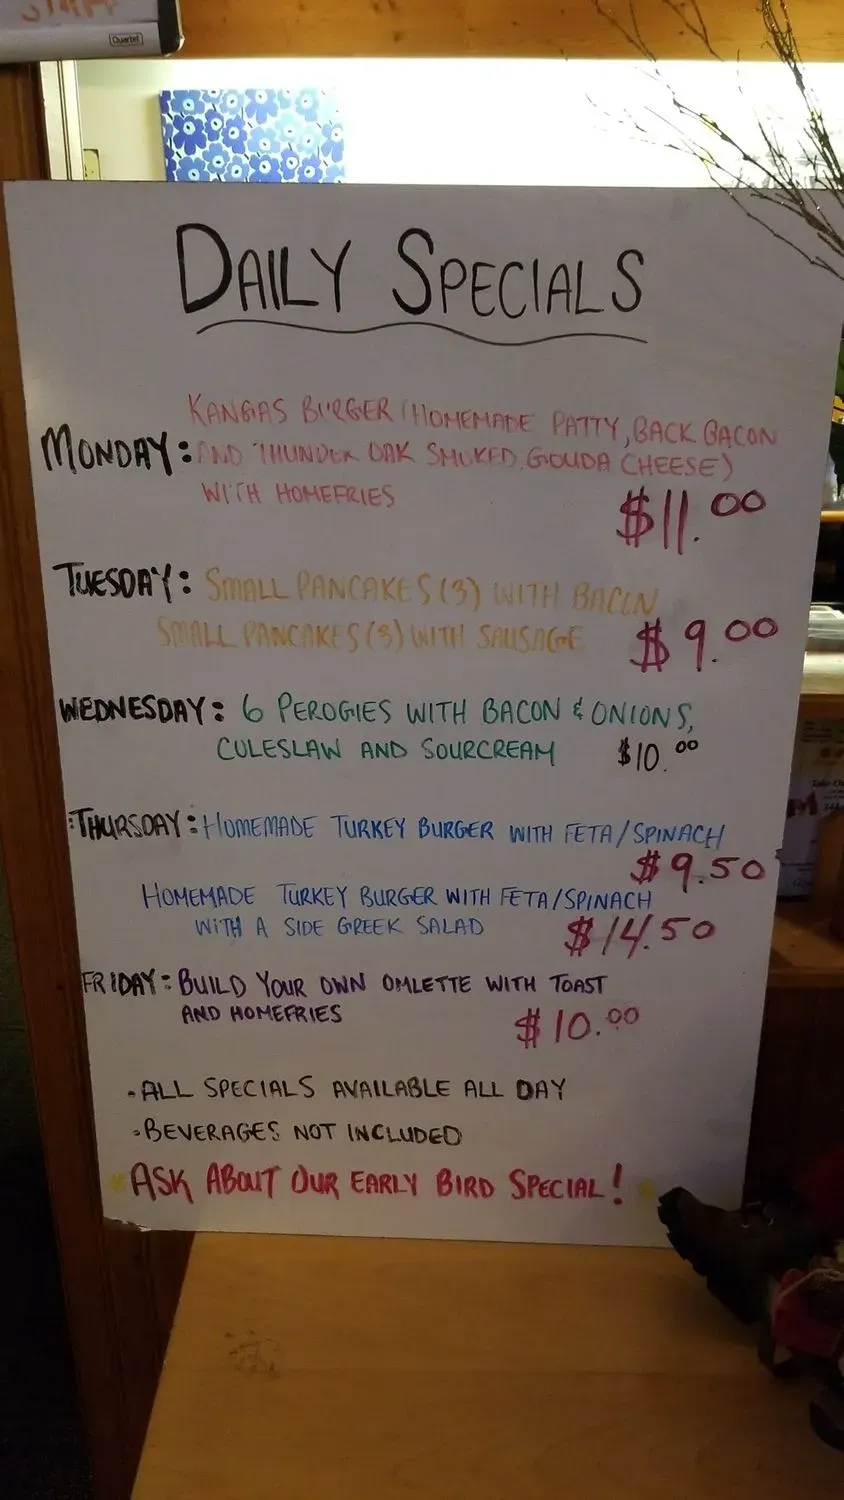 Quartet
DAILY SPECIALS
KANGAS BURGER (HOMEMADE PATTY, BACK BACON
MONDAY: AND THUNDER OAK SMOKED GOUDA CHEESE)
WITH HOMEFRIES
$11.00
TUESDAY: SMALL PANCAKES (3) WITH BACON
SMALL PANCAKES (3) WITH SAUSAGE $9.00
WEDNESDAY: 6 PEROGIES WITH BACON & ONIONS,
COLESLAW AND SOURCREAM $10.00
THURSDAY: HOMEMADE TURKEY BURGER WITH FETA/SPINACH
$9.50
HOMEMADE TURKEY BURGER WITH FETA/SPINACH
WITH A SIDE GREEK SALAD $14.50
FRIDAY: BUILD YOUR OWN OMLETTE WITH TOAST
AND HOMEFRIES $10.00
·ALL SPECIALS AVAILABLE ALL DAY
·BEVERAGES NOT INCLUDED
ASK ABOUT OUR EARLY BIRD SPECIAL!